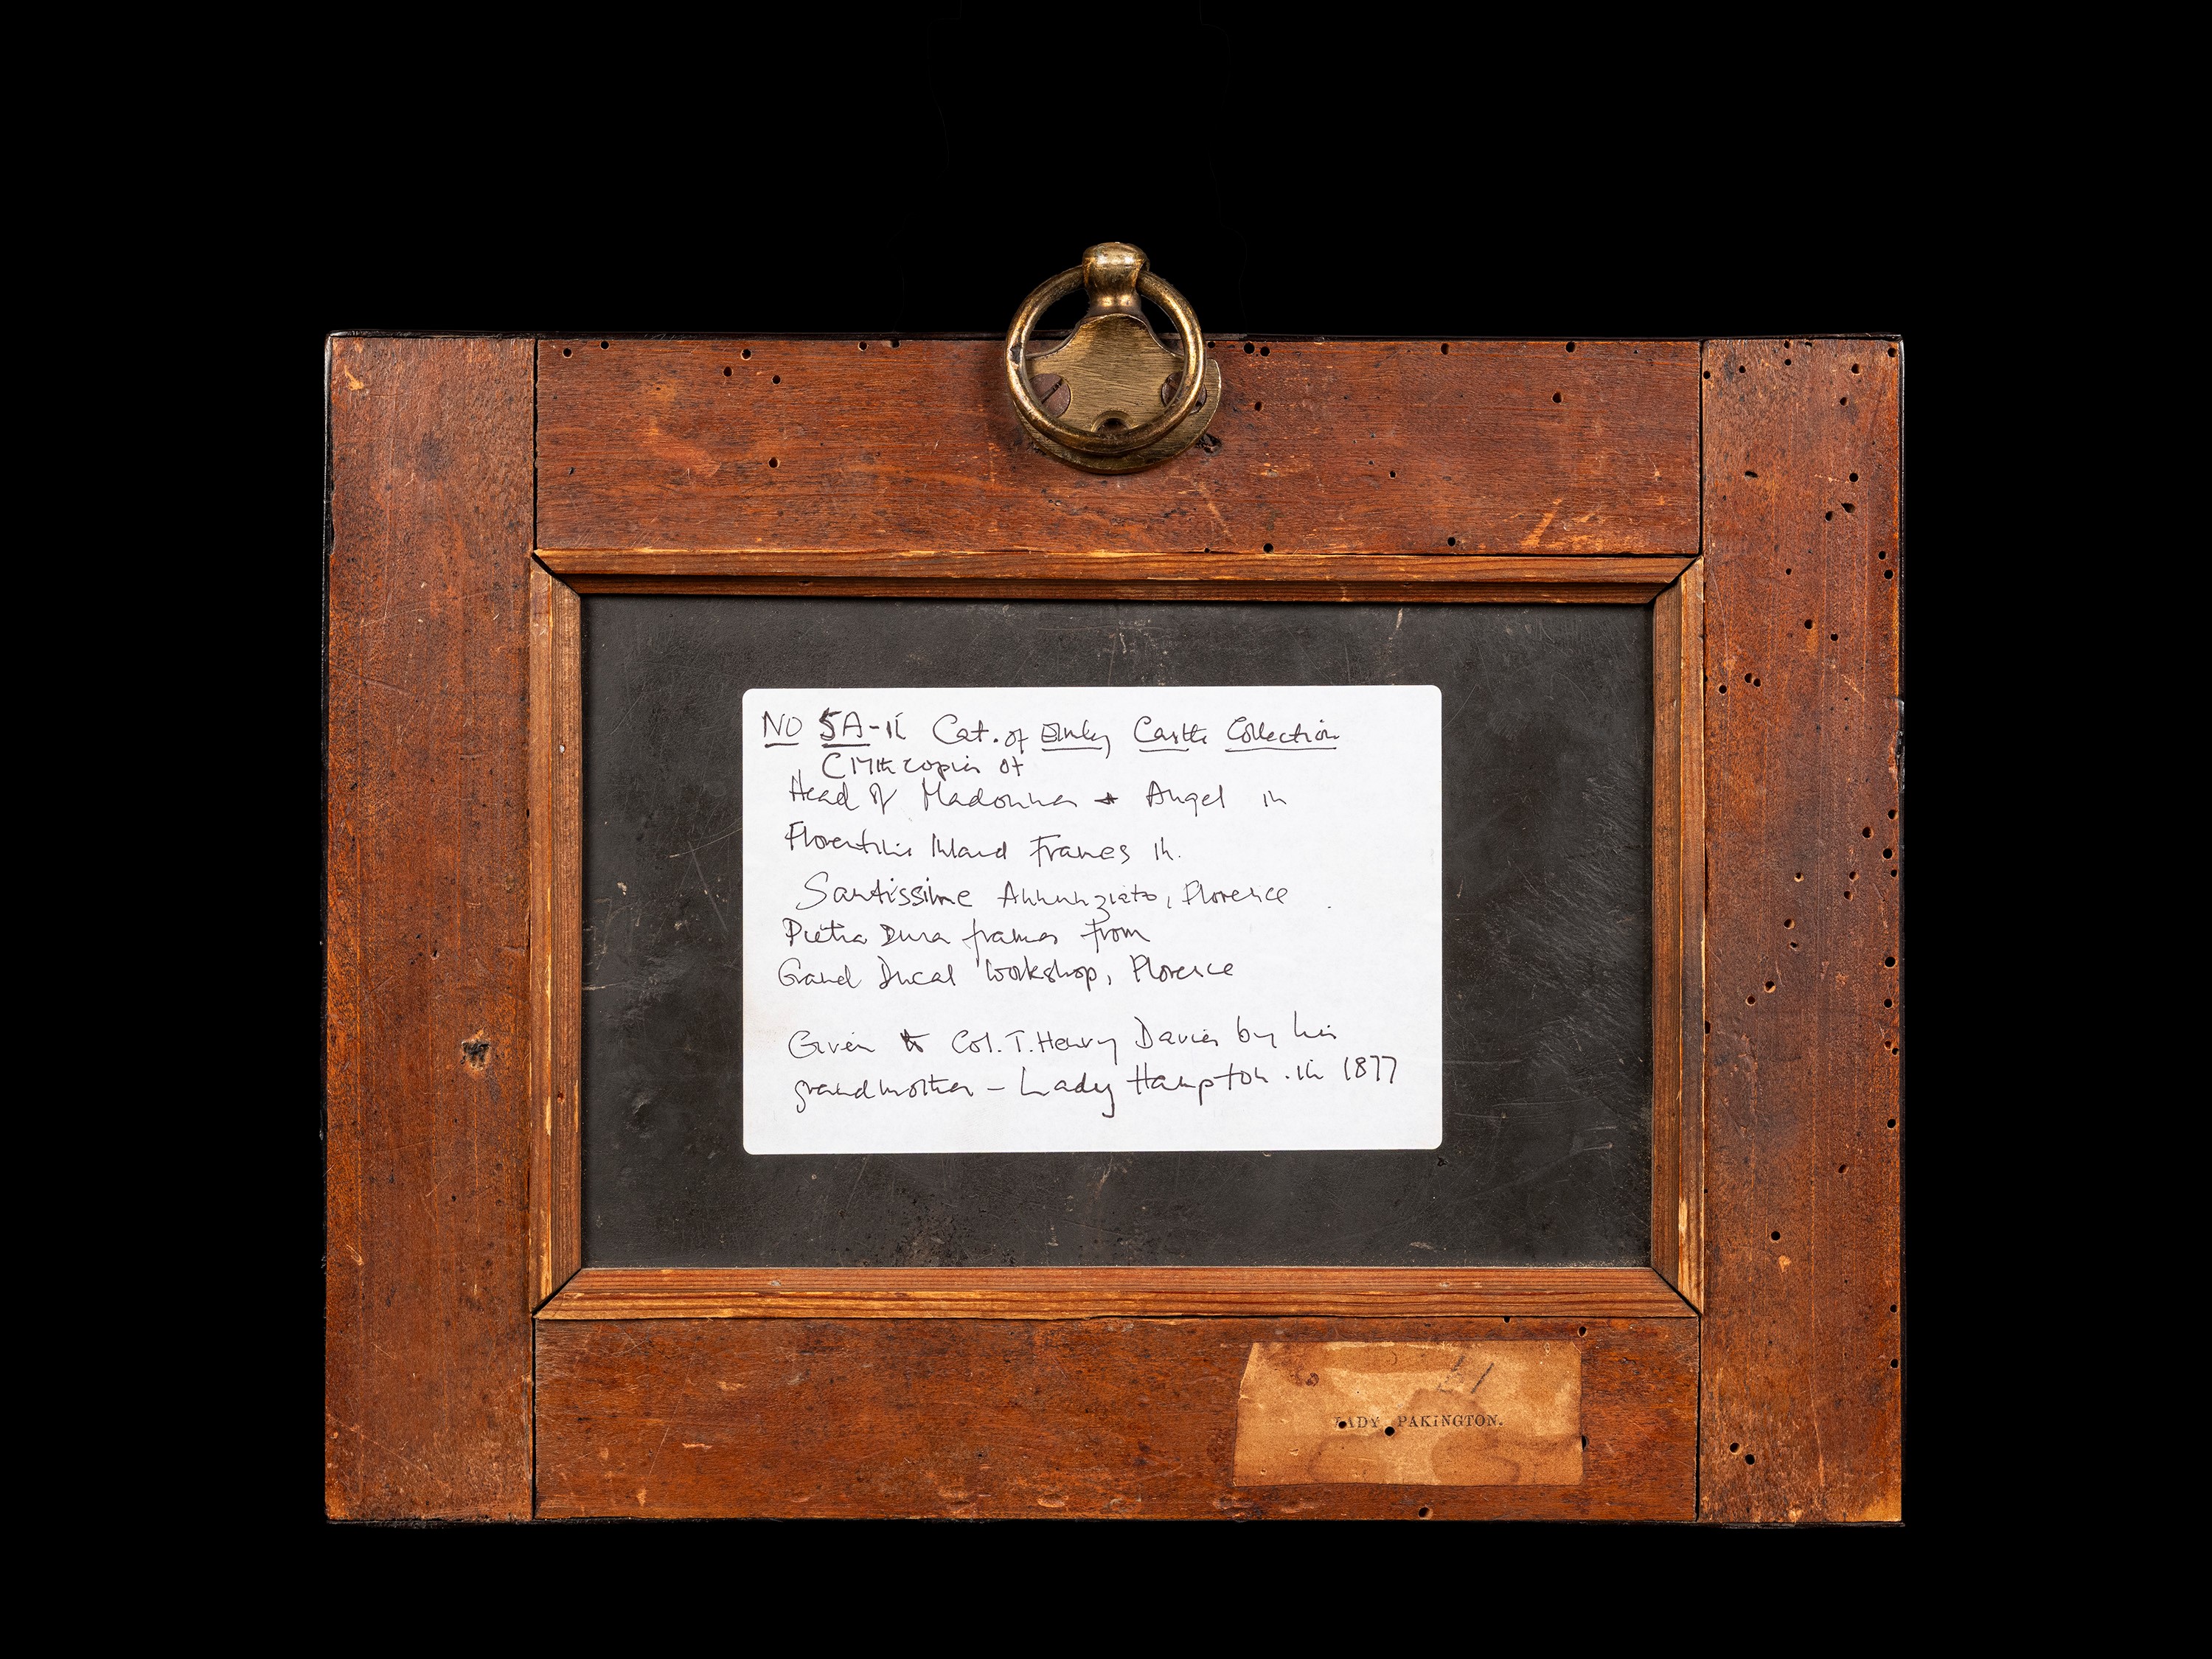 NO 5A-II Cat. of Emley Castle Collection
C17th copies of
Head of Madonna + Angel in
Florentine Inlaid Frames in.
Santissime Annunziata, Florence
Pietra Dura frames from
Grand Ducal Workshop, Florence
Given to Col. T. Henry Davies by his
grandmother - Lady Hampton. in 1877
LADY PAKINGTON.